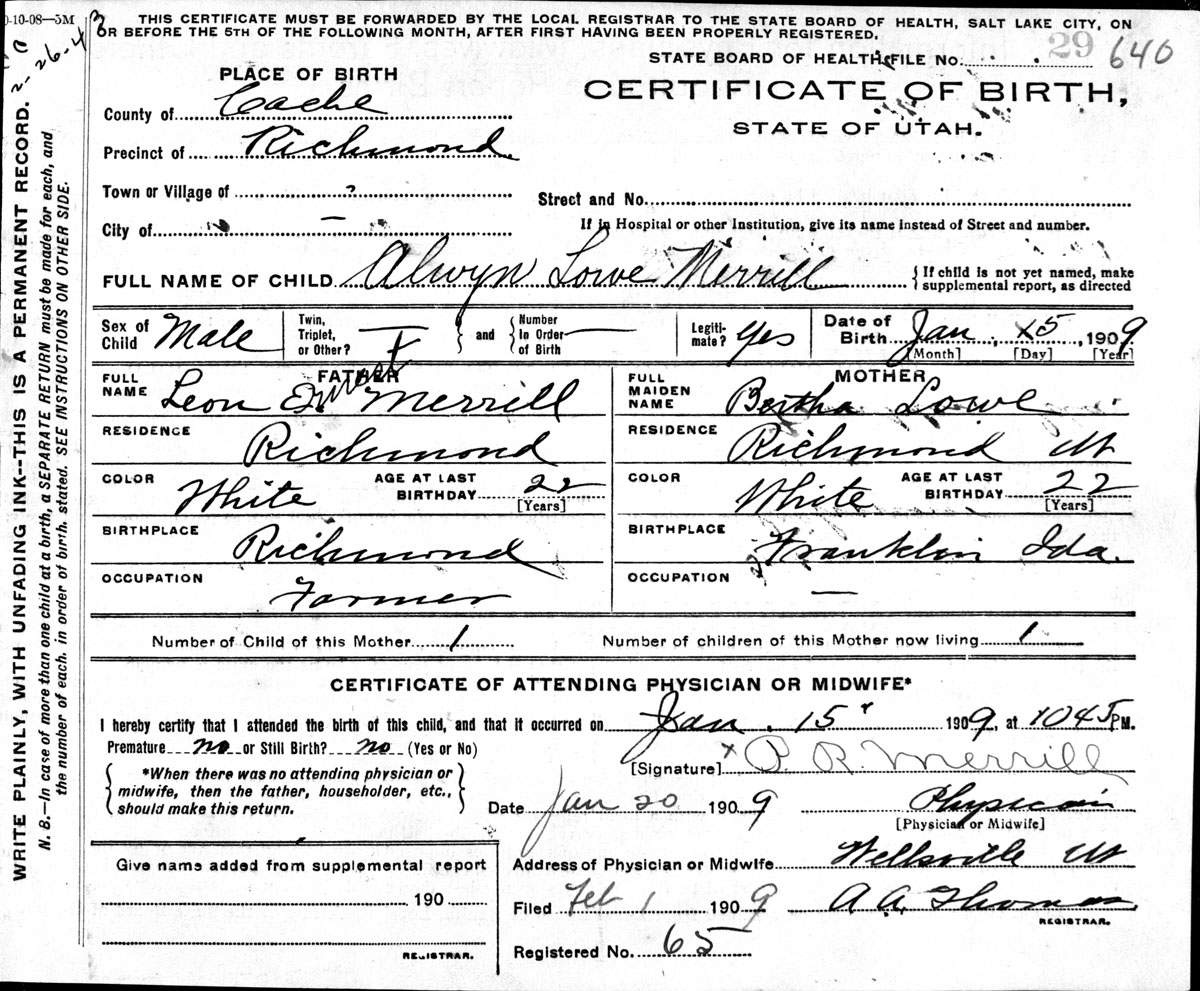 0-10-08—5M
THIS CERTIFICATE MUST BE FORWARDED BY THE LOCAL REGISTRAR TO THE STATE BOARD OF HEALTH, SALT LAKE CITY, ON
OR BEFORE THE 5TH OF THE FOLLOWING MONTH, AFTER FIRST HAVING BEEN PROPERLY REGISTERED.
2-26-4
WRITE PLAINLY, WITH UNFADING INK--THIS IS A PERMANENT RECORD.
N. B.—In case of more than one child at a birth, a SEPARATE RETURN must be made for each, and
the number of each. in order of birth. stated. SEE INSTRUCTIONS ON OTHER SIDE.
STATE BOARD OF HEALTH-FILE No. 29 640
PLACE OF BIRTH
CERTIFICATE OF BIRTH,
STATE OF UTAH.
County of Cache
Precinct of Richmond
Town or Village of ?
Street and No.
City of —
If in Hospital or other Institution, give its name instead of Street and number.
FULL NAME OF CHILD Alwyn Lowe Merrill
{If child is not yet named, make
supplemental report, as directed
Sex of Child Male
Twin, Triplet, or Other? —
and
Number In Order of Birth —
Legiti-mate? Yes
Date of Birth Jan, 15, 1909
[Month] [Day] [Year]
FATHER
FULL NAME Leon Ernest Merrill
RESIDENCE Richmond
COLOR White
AGE AT LAST BIRTHDAY 22
[Years]
BIRTHPLACE Richmond
OCCUPATION Farmer
MOTHER
FULL MAIDEN NAME Bertha Lowe
RESIDENCE Richmond Ut
COLOR White
AGE AT LAST BIRTHDAY 22
[Years]
BIRTHPLACE Franklin Ida.
OCCUPATION —
Number of Child of this Mother 1
Number of children of this Mother now living 1
CERTIFICATE OF ATTENDING PHYSICIAN OR MIDWIFE*
I hereby certify that I attended the birth of this child, and that it occurred on Jan. 15 1909, at 1045 P M.
Premature no or Still Birth? no (Yes or No)
*When there was no attending physician or
midwife, then the father, householder, etc.,
should make this return.
[Signature] x P. R. Merrill
Date Jan 20 1909
Physicain
[Physician or Midwife]
Give name added from supplemental report
190
REGISTRAR.
Address of Physician or Midwife Wellsville Ut
Filed Feb 1 1909 A A Thomas
REGISTRAR.
Registered No. 65